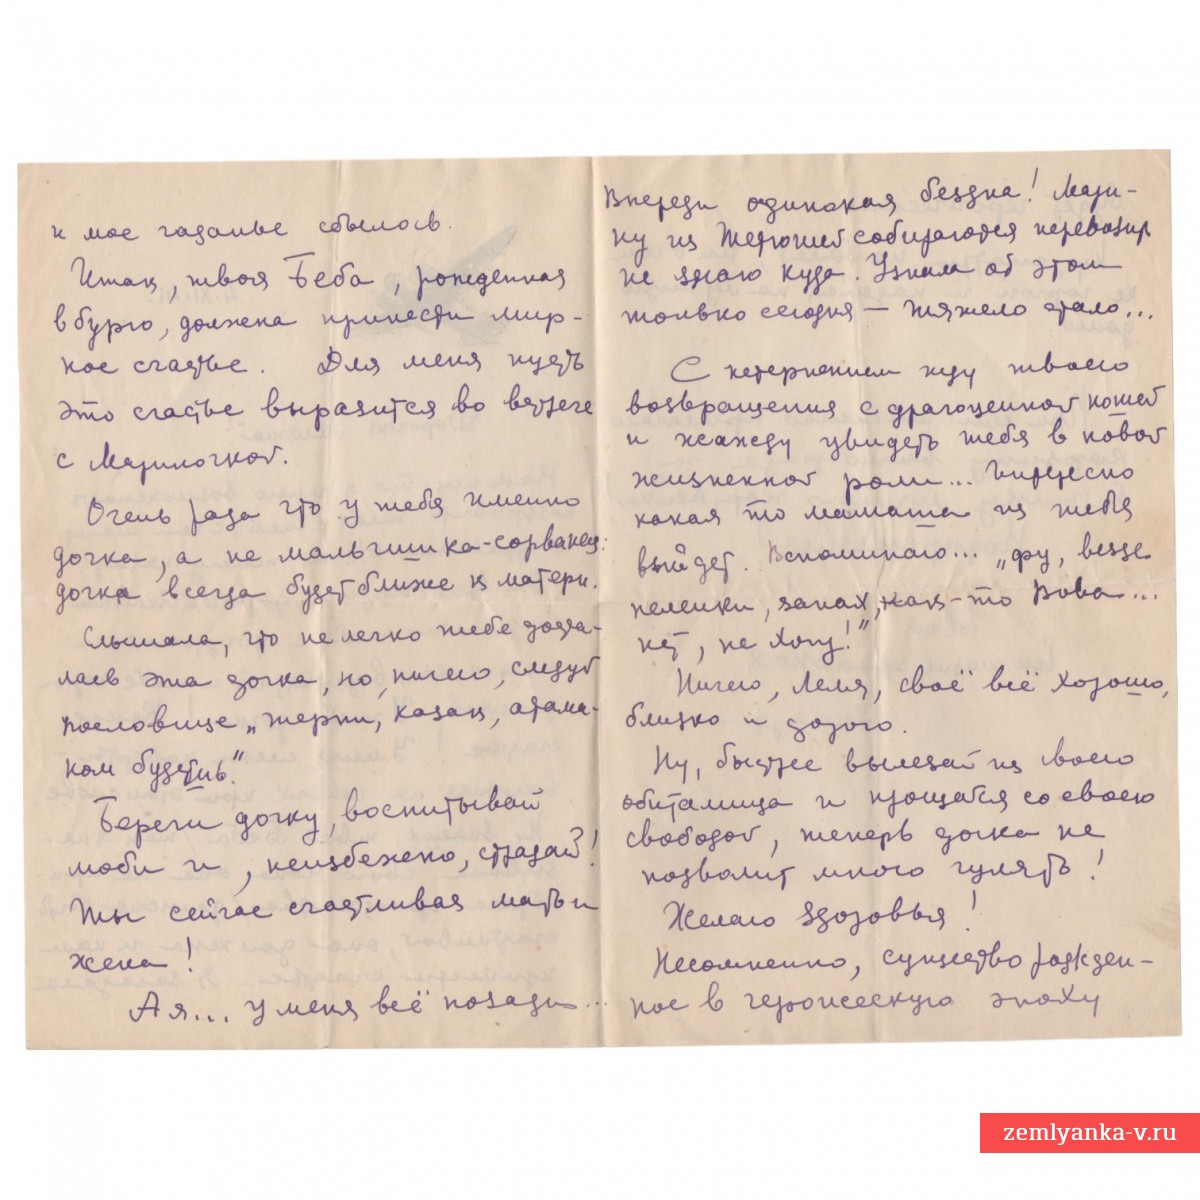 и мое гаданье сбылось.
Итак, твоя Беба, рожденная
в бурю, должна принести мир-
ное счастье. Для меня пусть
это счастье выразится во встрече
с Мариночкой.
Очень рада что у тебя именно
дочка, а не мальчишка-сорванец:
дочка всегда будет ближе к матери.
Слышала, что не легко тебе доста-
лась эта дочка, но, ничего, следуй
пословице „терпи, казак, атама-
ном будешь".
Береги дочку, воспитывай
люби и, неизбежно, страдай!
Ты сейчас счастливая мать и
жена!
А я... у меня всё позади...
Впереди одинокая бездна! Мари-
ну из Тетюшей собираются перевозить
не знаю куда. Узнали об этом
только сегодня — тяжело стало...
С нетерпением жду твоего
возвращения с драгоценной ношей
и жажду увидеть тебя в новой
жизненной роли... Интересно
какая то мамаша из тебя
выйдет. Вспоминаю... „фу, везде
пеленки, запах, как-то Вова...
нет, не хочу!"
Ничего, Леля, своё всё хорошо,
близко и дорого.
Ну, быстрее вылезай из своего
обиталища и прощайся со своею
свободой, теперь дочка не
позволит много гулять!
Желаю здоровья!
Несомненно, существо рожден-
ное в героическую эпоху
zemlyanka-v.ru